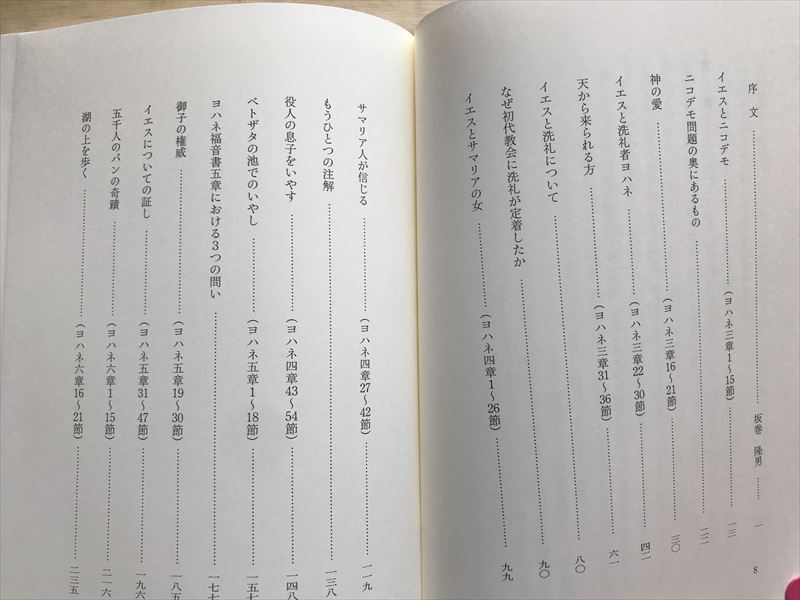 序文………坂巻 隆男……一
イエスとニコデモ………(ヨハネ三章1〜15節)………一三
ニコデモ問題の奥にあるもの………二二
神の愛………(ヨハネ三章16〜21節)………三〇
イエスと洗礼者ヨハネ………(ヨハネ三章22〜30節)………四二
天から来られる方………(ヨハネ三章31〜36節)………六一
イエスと洗礼について………八〇
なぜ初代教会に洗礼が定着したか………九〇
イエスとサマリアの女………(ヨハネ四章1〜26節)………九九
8
サマリア人が信じる………(ヨハネ四章27〜42節)………一一九
もうひとつの注解………一三八
役人の息子をいやす………(ヨハネ四章43〜54節)………一四八
ベトザタの池でのいやし………(ヨハネ五章1〜18節)………一五七
ヨハネ福音書五章における3つの問い………一七七
御子の権威………(ヨハネ五章19〜30節)………一八五
イエスについての証し………(ヨハネ五章31〜47節)………一九六
五千人のパンの奇蹟………(ヨハネ六章1〜15節)………二一六
湖の上を歩く………(ヨハネ六章16〜21節)………二三五